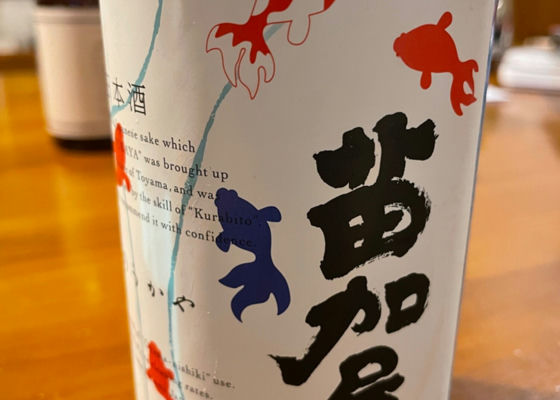 本酒
nese sake which
YA" was brought up
of Toyama, and was
by the skill of "Kurabito".
mend it with confidence.
うかや
nishiki" use.
rates.
苗加屋